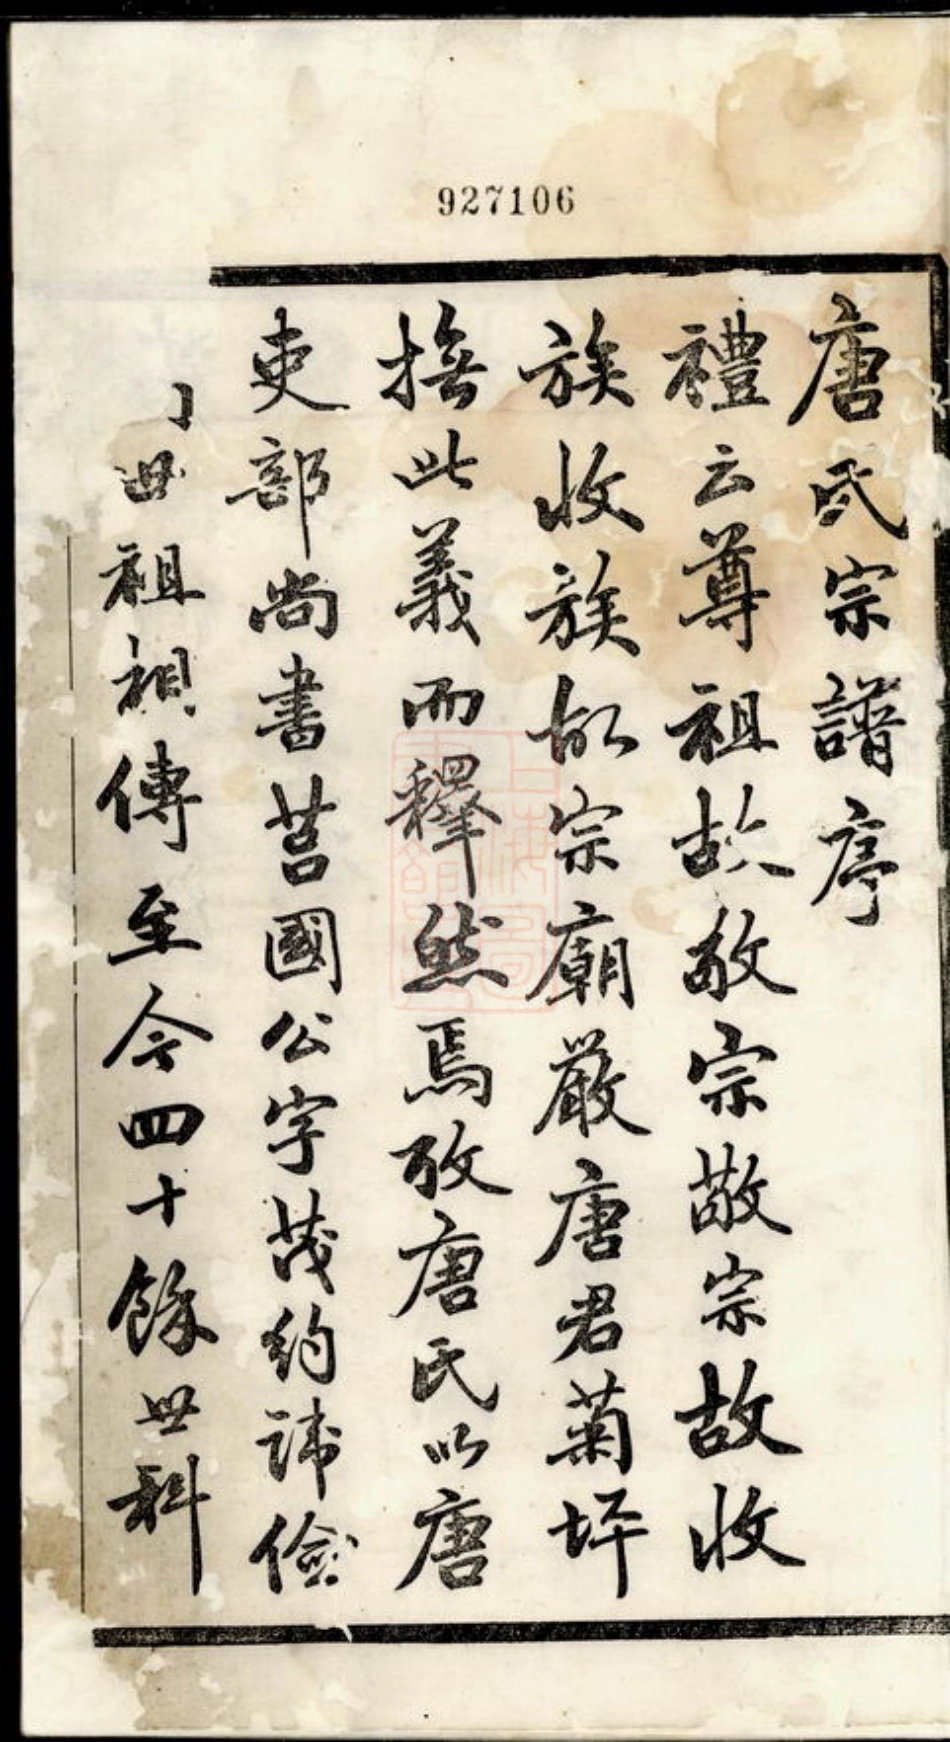 927106
唐氏宗譜序
禮云尊祖故敬宗敬宗故收
族收族故宗廟嚴唐君菊坪
撫此義而釋然焉攷唐氏以唐
吏部尚書莒國公字茂約諱儉
世祖相傳至今四十餘世科